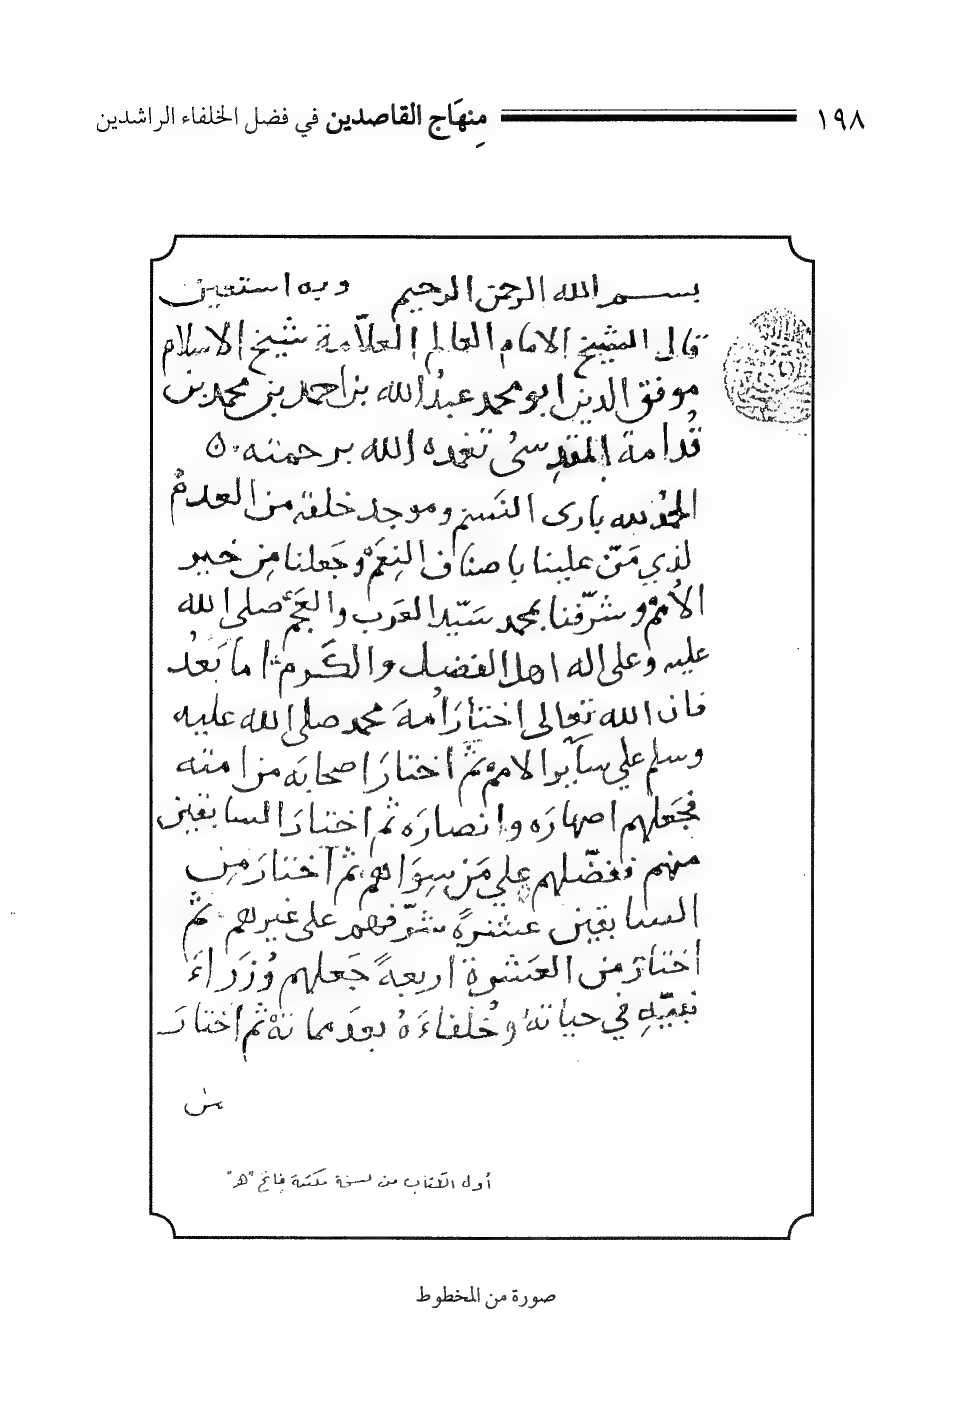 ١٩٨ مِنهَاج القاصدين في فضل الخلفاء الراشدين
بسم الله الرحمن الرحيم وبه استعين
قال الشيخ الامام العالم العلّامة شيخ الاسلام
موفق الدين ابو محمد عبدُ الله بن احمد بن محمد بن
قُدامة المقدِسىُ تغمده الله برحمته
الحمدُ لله بارى النَسَم وموجد خلقه من العدمُ
لذي مَنّ علينا باصناف النِعَمْ وجَعلنا مِن خير
الأُممْ وشرّفنا بمحمد سَيّد العَرب والعَجَم صلى الله
عليه وعلى اله اهل الفضل والكَرم اما بَعْدُ
فان الله تعالى اختارَ اُمةَ محمد صلى الله عليه
وسلم علي سآير الاممْ ثمّ اختارَ اصحابَه من امته
فجَعلهم اصهارَه وانصارَه ثم اختارَ السابقين
منهم ففضّلهم علي مَن سِوَاهم ثم اختارَ مِن
السابقين عشرةً شرّفهم على غيرهم ثمّ
اختارَ من العَشرة اربعةً جَعلهم وُزَراءَ
نبيّهِ في حياتهُ وخُلفاءَهُ بعدَ مماته ثم اختارَ
من
أول الكتاب من نسخة مكتبة فاتح "هـ"
صورة من المخطوط